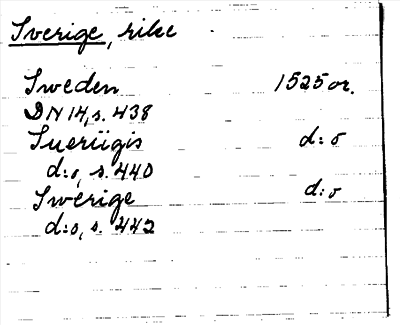 Sverige, rike
Sweden 1525 or.
DN 14, s. 438
Sueriigis d:o
d:o, s. 440
Swerige d:o
d:o, s. 442